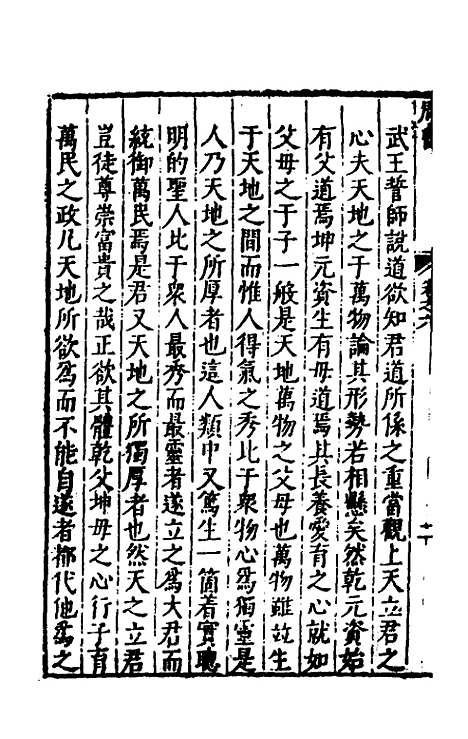 武王誓師說道欲知君道所係之重當觀上天立君之
心夫天地之于萬物論其形勢若相懸矣然乾元資始
有父道焉坤元資生有母道焉其長養愛育之心就如
父母之于子一般是天地萬物之父母也萬物雖並生
于天地之間而惟人得氣之秀比于衆物心爲獨靈是
人乃天地之所厚者也這人類中又篤生一箇着實聰
明的聖人比于衆人最秀而最靈者遂立之爲大君而
統御萬民焉是君又天地之所獨厚者也然天之立君
豈徒尊崇富貴之哉正欲其體乾父坤母之心行子育
萬民之政凡天地所欲爲而不能自遂者都代他爲之